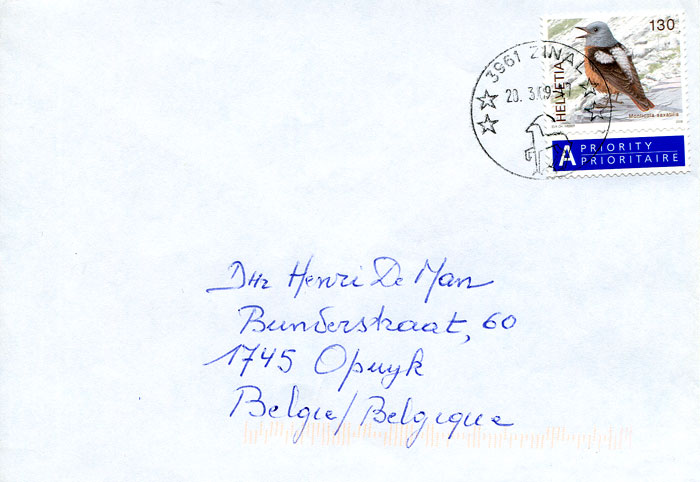 130
HELVETIA
Monticola saxatilis
3961 ZINAL
20. 3.09
A PRIORITY
PRIORITAIRE
Dhr Henri De Man
Bunderstraat, 60
1745 Opwyk
Belgie/Belgique